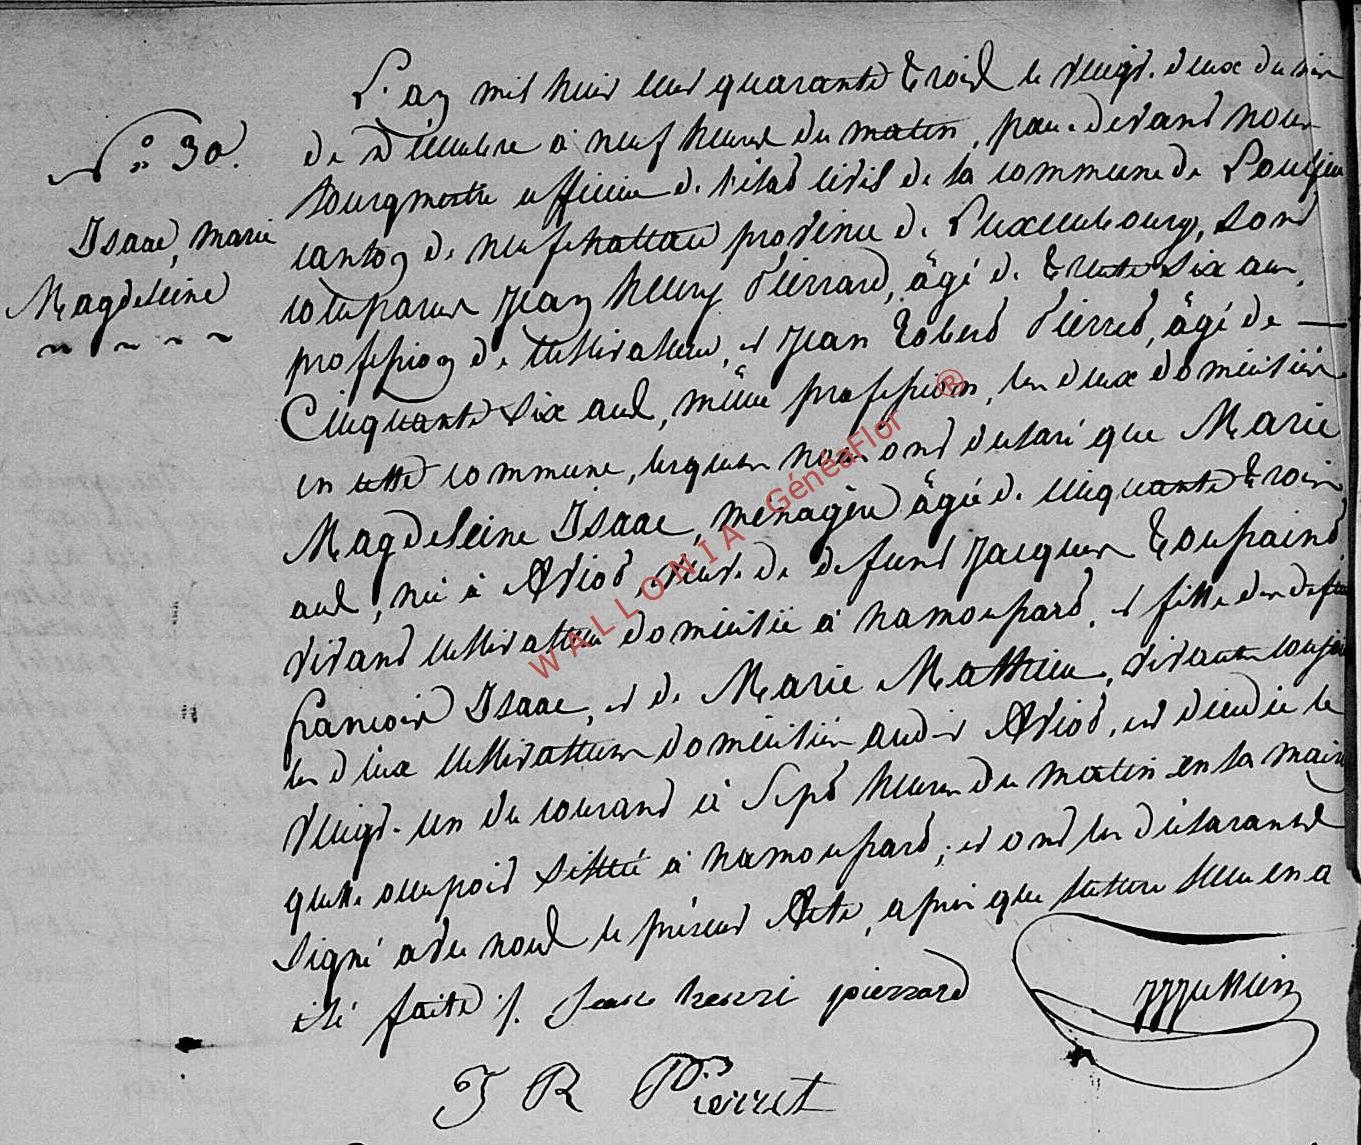 N° 30.
Isaac, Marie
Magdeleine
L'an mil huit cent quarante trois le vingt-deux du mois
de décembre à neuf heures du matin, par-devant nous
bourgmestre officier de l'état civil de la commune de
canton de neufchateau province de Luxembourg, sont
comparus Jean henry Pierrard, âgé de trente six ans,
profession de cultivateur, et Jean Robert Pierret, âgé de
Cinquante six ans, même profession, les deux domiciliés
en cette commune, lesquels nous ont déclaré que Marie
Magdeleine Isaac, ménagère âgée de cinquante trois
ans, née à Assenois, veuve de defunt Jacques Toussaint,
vivant cultivateur domicilié à namoussart, et fille des defunts
francois Isaac, et de Marie Mathieu, vivants conjoints
les deux cultivateurs domiciliés audit, est décédée le
vingt-un du courant à sept heures du matin en la maison
qu'elle occupoit située à namoussart; et ont les déclarants
signé avec nous le présent Acte, après que lecture leur en a
été faite /. Jean henri pierrard
J R Pierret
WALLONIA GénéaFlor ®